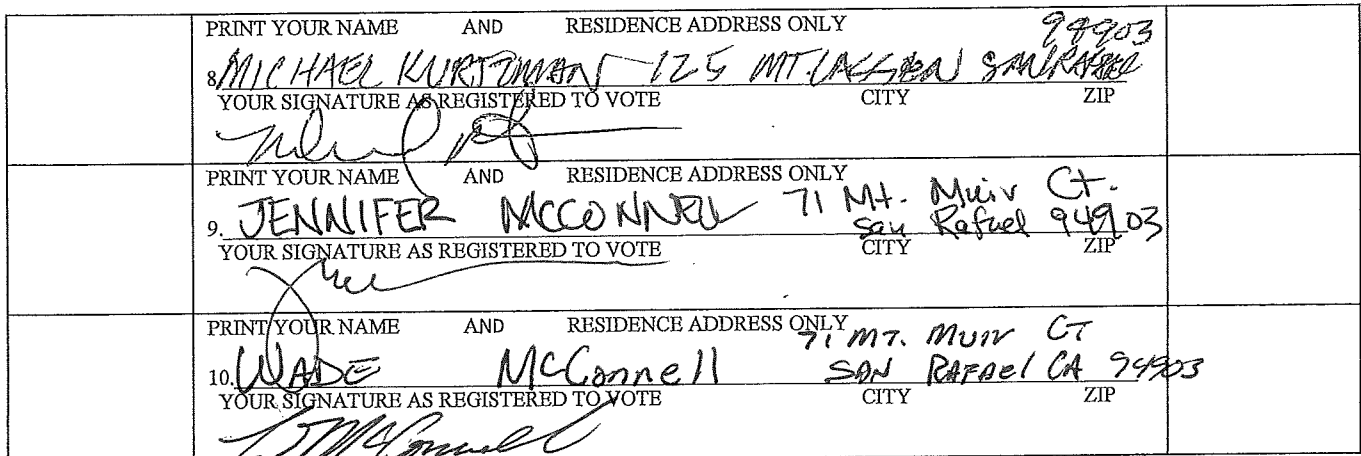 PRINT YOUR NAME AND RESIDENCE ADDRESS ONLY 94903
8. MICHAEL KURTZMAN 125 MT. LASSEN SAN RAFAEL
YOUR SIGNATURE AS REGISTERED TO VOTE CITY ZIP
PRINT YOUR NAME AND RESIDENCE ADDRESS ONLY
71 Mt. Muir Ct.
9. JENNIFER MCCONNELL San Rafael 94903
YOUR SIGNATURE AS REGISTERED TO VOTE CITY ZIP
PRINT YOUR NAME AND RESIDENCE ADDRESS ONLY
71 MT. MUIR CT
10. WADE McConnell SAN RAFAEl CA 94903
YOUR SIGNATURE AS REGISTERED TO VOTE CITY ZIP
W McConnell